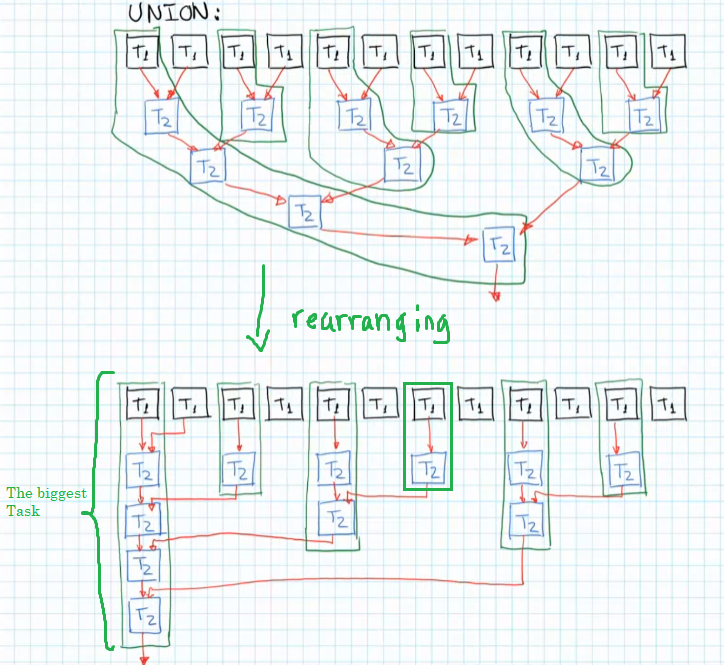 UNION:
T1 T1 T1 T1 T1 T1 T1 T1 T1 T1 T1 T1
T2 T2 T2 T2 T2 T2
T2 T2 T2
T2
T2
rearranging
T1 T1 T1 T1 T1 T1 T1 T1 T1 T1 T1 T1
T2 T2 T2 T2 T2 T2
The biggest
Task
T2 T2 T2
T2
T2